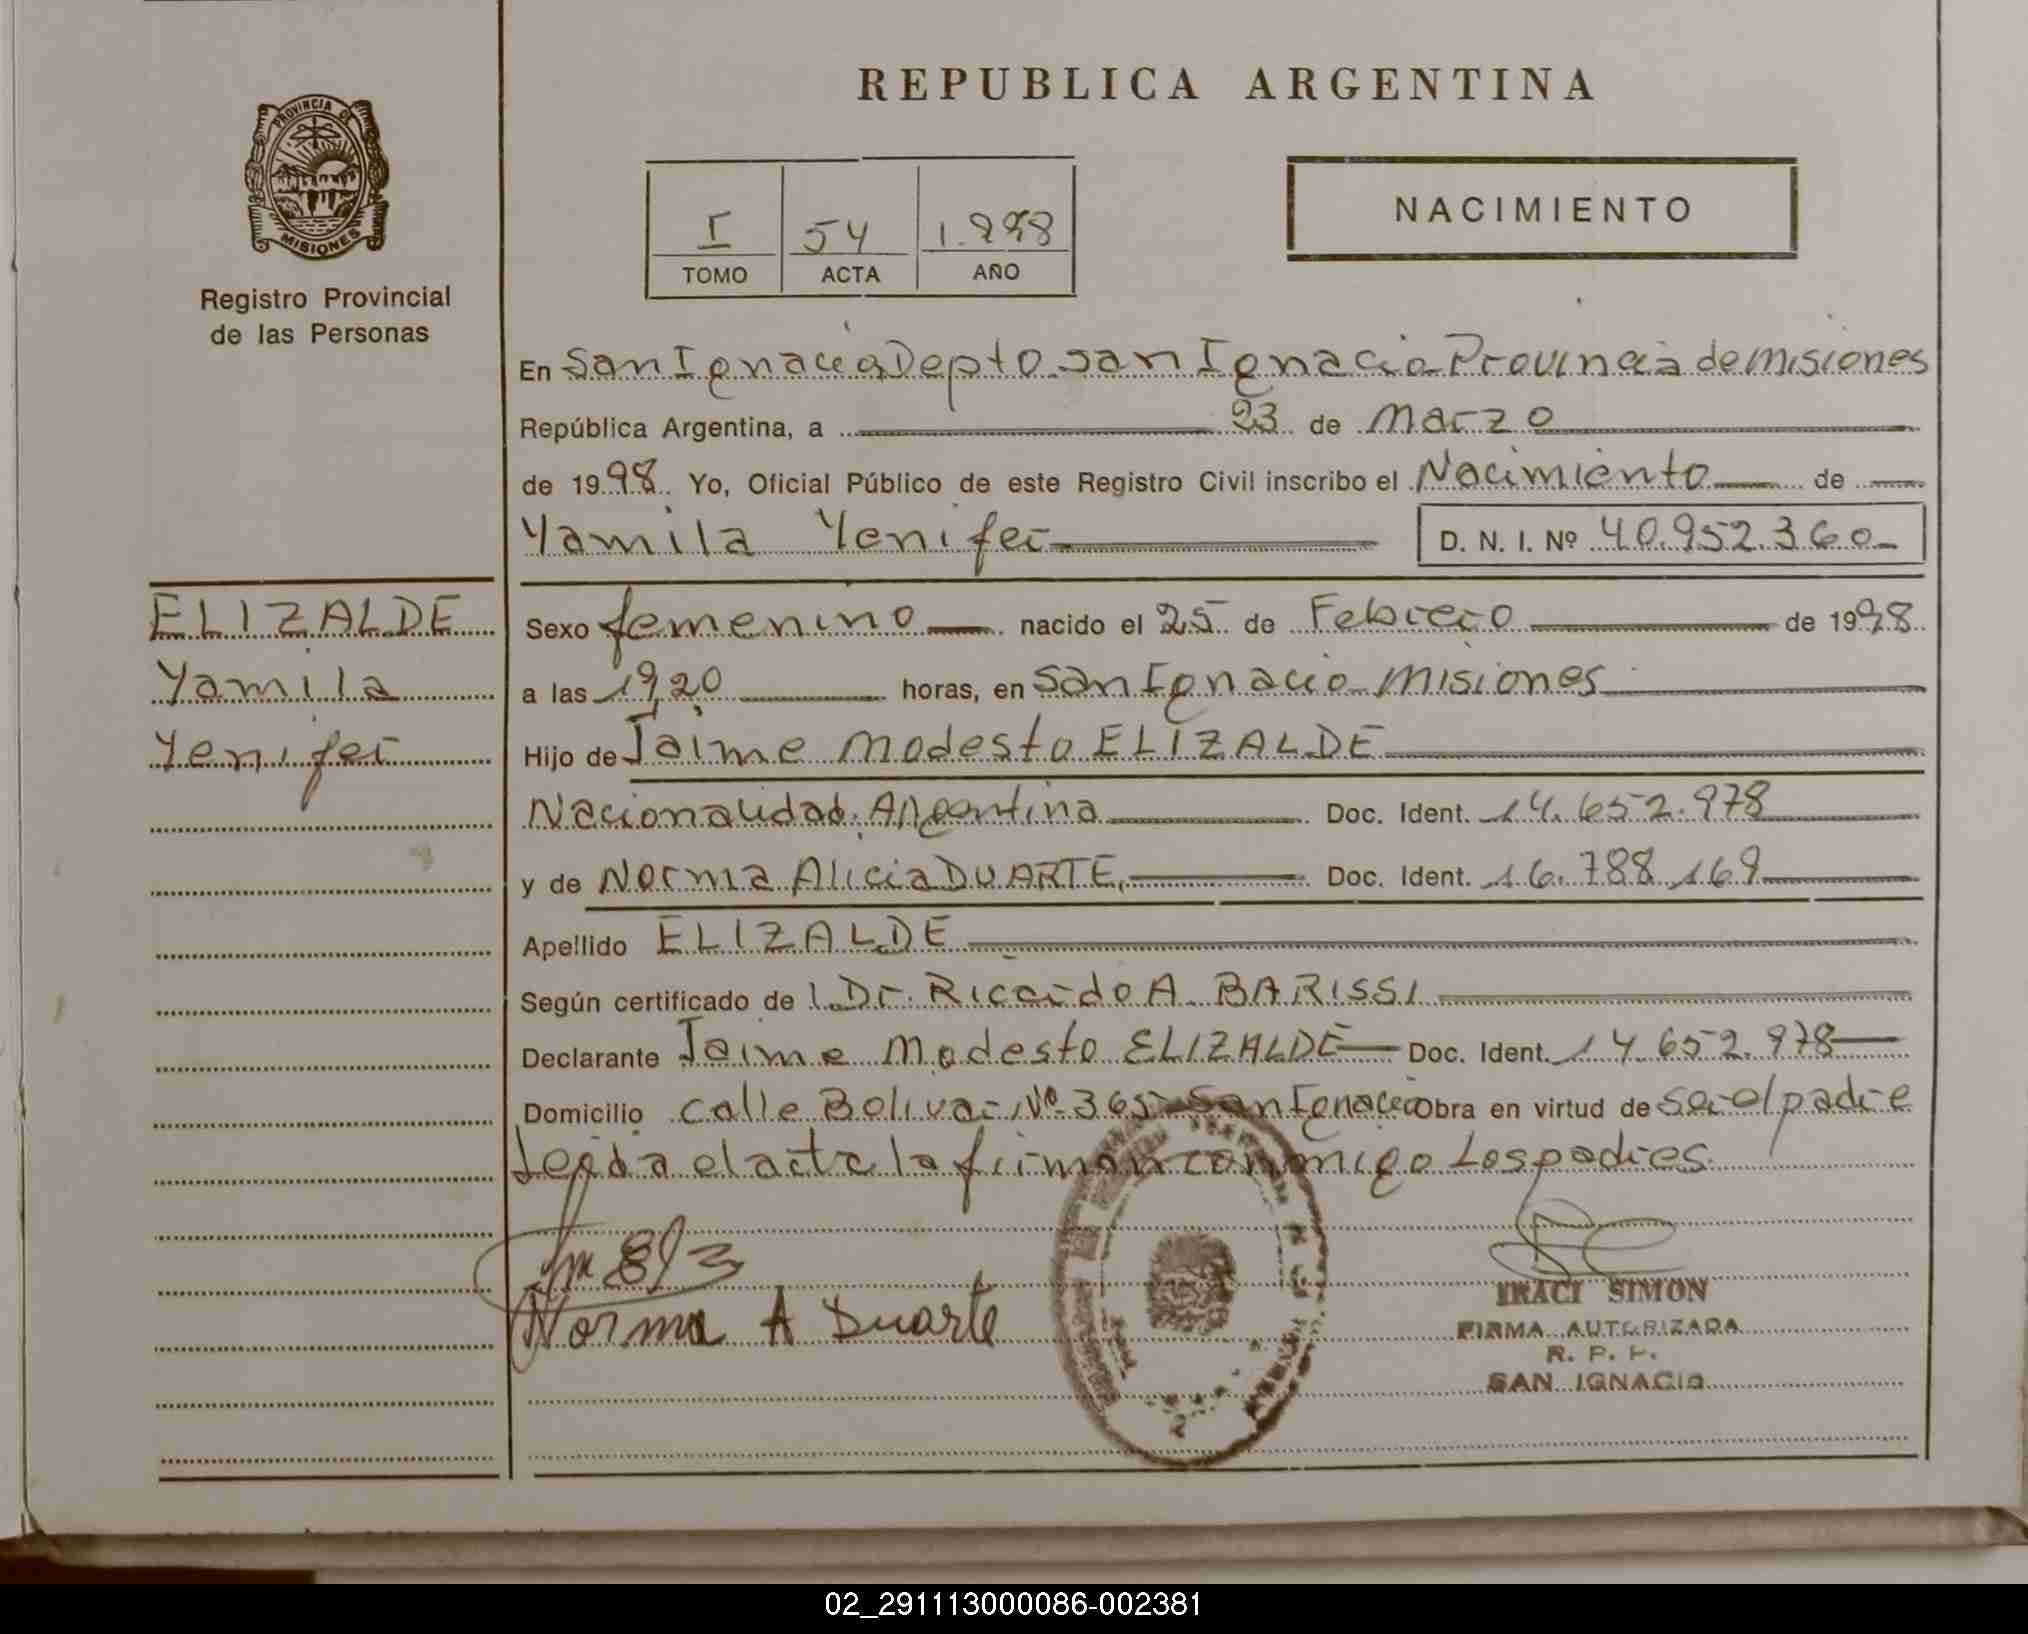 REPUBLICA ARGENTINA
PROVINCIA DE
MISIONES
Registro Provincial
de las Personas
I 54 1.998
TOMO ACTA AÑO
NACIMIENTO
En San Ignacio, Depto. San Ignacio Provincia de Misiones
República Argentina, a 23 de Marzo
de 1998. Yo, Oficial Público de este Registro Civil inscribo el Nacimiento de
Yamila Yenifer D. N. I. Nº 40.952.360
ELIZALDE
Yamila
Yenifer
Sexo femenino nacido el 25 de Febrero de 1998
a las 19,20 horas, en San Ignacio Misiones
Hijo de Jaime Modesto ELIZALDE
Nacionalidad Argentina Doc. Ident. 14.652.978
y de Norma Alicia DUARTE, Doc. Ident. 16.788.169
Apellido ELIZALDE
Según certificado de l Dr. Ricardo A. BARISSI
Declarante Jaime Modesto ELIZALDE Doc. Ident. 14.652.978
Domicilio calle Bolivar Nº 365 San Ignacio obra en virtud de ser el padre
Leída el acta la firman conmigo Los padres
Norma A Duarte
IRACI SIMON
FIRMA AUTORIZADA
R. P. P.
SAN IGNACIO
02_291113000086-002381